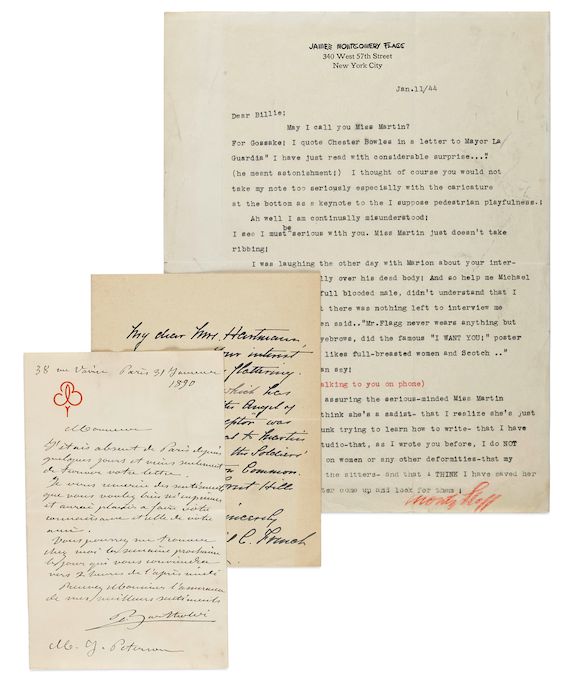 JAMES MONTGOMERY FLAGG
340 West 57th Street
New York City
Jan.11/44
Dear Billie;
May I call you Miss Martin?
For Gossake; I quote Chester Bowles in a letter to Mayor La
Guardia" I have just read with considerable surprise..."
(he meant astonishment;) I thought of course you would not
take my note too seriously especially with the caricature
at the bottom as a keynote to the I suppose pedestrian playfulness.;
Ah well I am continually misunderstood;
be
I see I must serious with you. Miss Martin just doesn't take
ribbing;
I was laughing the other day with Marion about your inter-
lly over his dead body; And so help me Michael
full blooded male, didn't understand that I
t there was nothing left to interview me
en said.."Mr.Flagg never wears anything but
eyebrows, did the famous "I WANT YOU;" poster
likes full-breasted women and Scotch .."
an say;
alking to you on phone)
assuring the serious-minded Miss Martin
think she's a sadist- that I realize she's just
unk trying to learn how to write- that I have
tudio-that, as I wrote you before, I do NOT
on women or any other deformities-that my
the sitters- and that I THINK I have saved her
ter come up and look for them ;
Monty Flagg
My dear Mrs. Hartmann,
your interest
flattering.
which has
Angel of
ptor" was
to Martin
the Soldiers'
on Common.
Forest Hills
incerely
C. French
38 rue Vavin Paris 31 Janvier
1890
Monsieur
J'étais absent de Paris depuis
quelques jours et viens seulement
de trouver votre lettre.
Je vous remercie des sentiments
que vous voulez bien m'exprimer
et aurai plaisir à faire votre
connaissance et celle de votre
ami.
Vous pourrez me trouver
chez moi la semaine prochaine
le jour qui vous conviendra
vers 2 heures de l'après midi
Recevez Monsieur l'assurance
de mes meilleurs sentiments
Bartholdi
M. J. Peterson